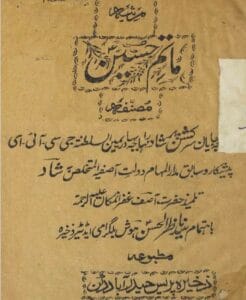 مرثیہ
ماتم حسین
مصنفہ
سر کشن پرشاد بہادر یمین السلطنۃ جی سی آئی ای
پیشکار و سابق مدار المہام دولت آصفیہ المتخلص شاد
تلمیذ حضرت آصف غفران مکان علیہ الرحمۃ
باہتمام سید ناظر الحسن ہوش بلگرامی ایڈیٹر ذخیرہ
مطبوعہ
ذخیرہ پریس حیدرآباد دکن